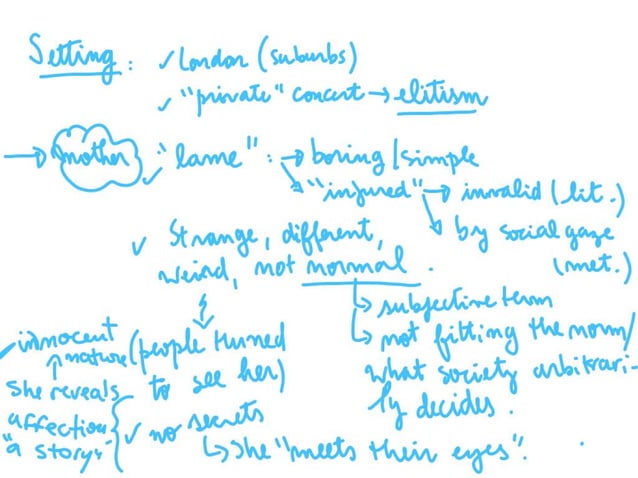 Setting: ✓ London (suburbs)
✓ "private" concert → elitism
→ mother ✓ "lame": → boring/simple
→ "injured" → invalid (lit.)
↘ by social gaze
(met.)
✓ Strange, different,
weird, not normal.
↳ subjective term
↳ not fitting the norm/
what society arbitrari-
ly decides.
✓ innocent
nature
(people turned
to see her)
She reveals
affection
"a story"
✓ no secrets
↳ She "meets their eyes".